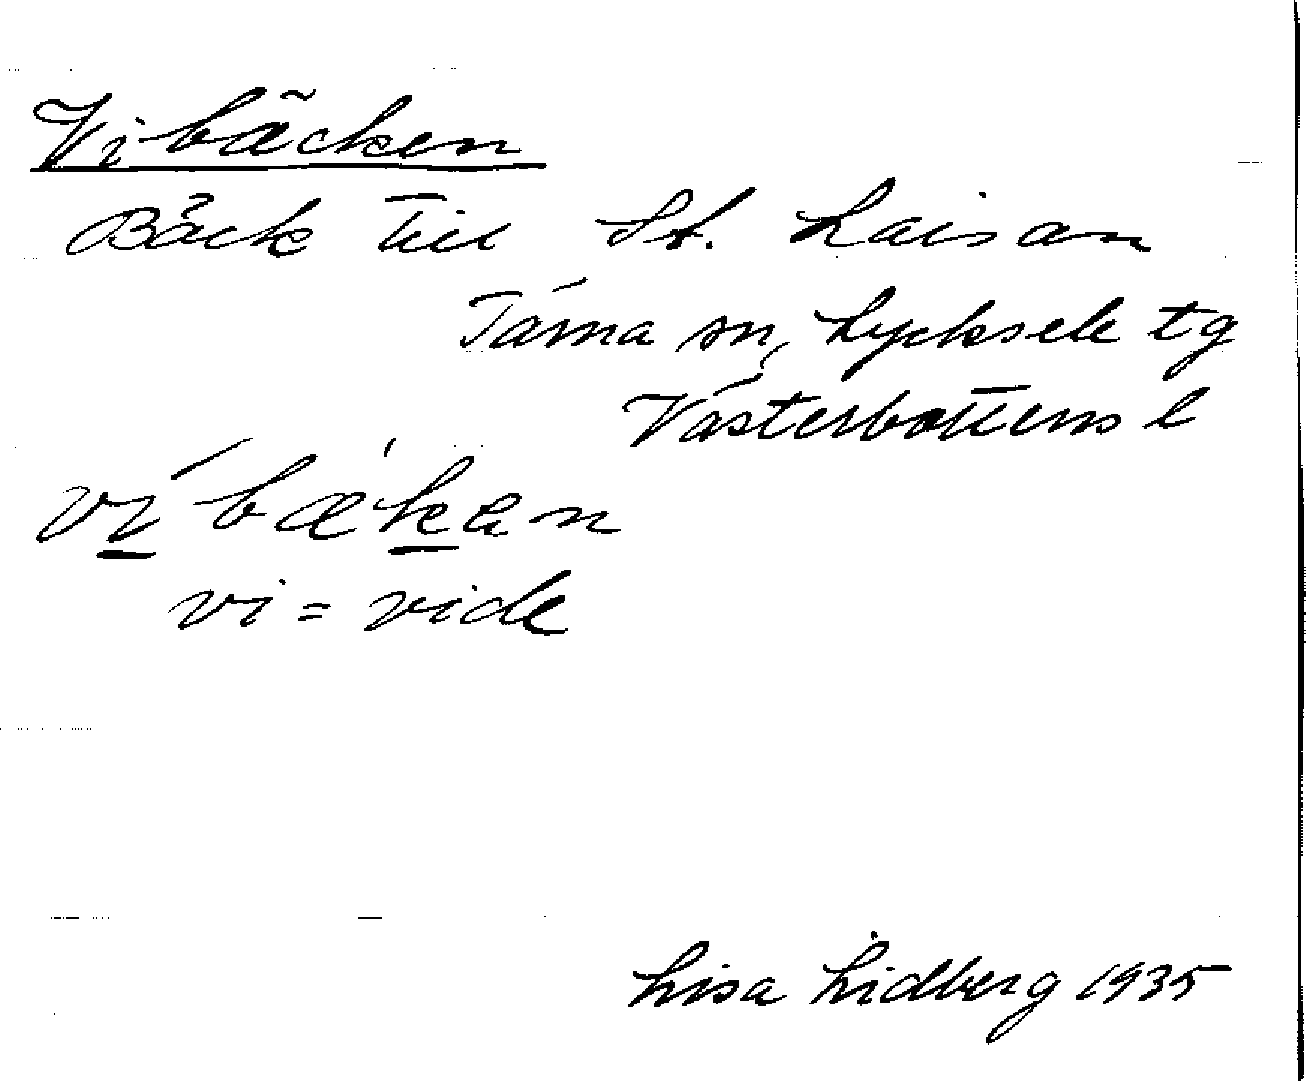 Vibäcken
Bäck till St. Laisan
Tärna sn, Lycksele tg
Västerbottens l
ví bæ'kan
vi = vide
Lisa Lidberg 1935